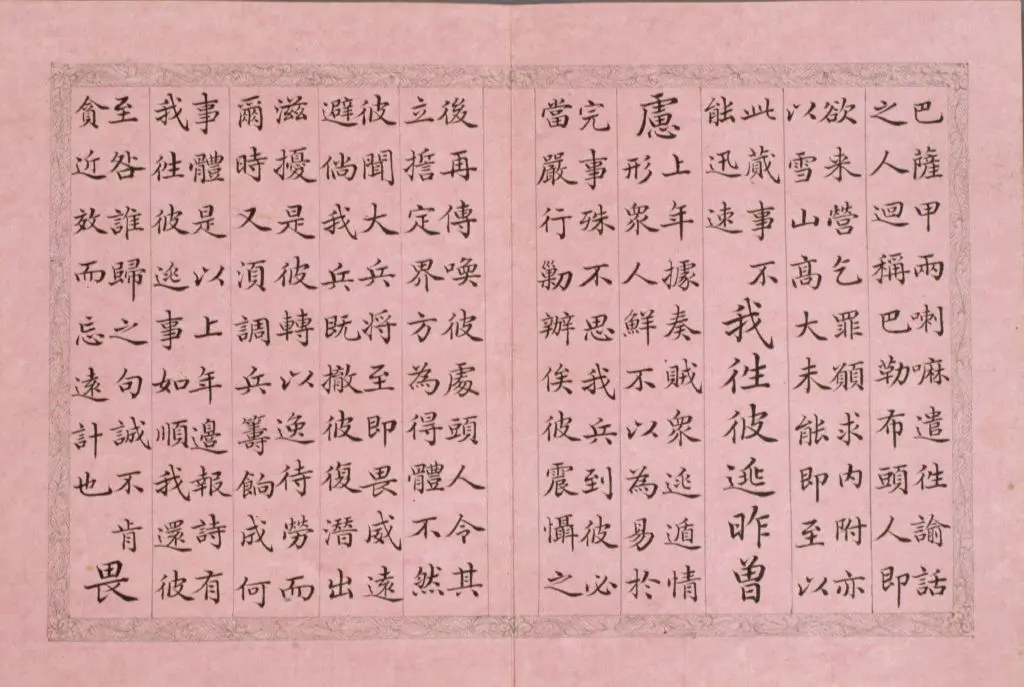 巴薩甲兩喇嘛遣徃諭話
之人迴稱巴勒布頭人即
欲来營乞罪願求內附亦
以雪山髙大未能即至以
此蕆事不
能迅速
我徃彼逃昨曾
慮
上年據奏賊衆逃遁情
形衆人鮮不以為易於
完事殊不思我兵到彼必
當嚴行勦辦俟彼震懾之
後再傳喚彼處頭人令其
立誓定界方為得體不然
彼聞大兵将至即畏威遠
避倘我兵既撤彼復潛出
滋擾是彼轉以逸待勞而
爾時又湏調兵籌餉成何
事體是以上年邊報詩有
我徃彼逃事如順我還彼
至咎誰歸之句誠不肯
貪近效而忘遠計也
畏